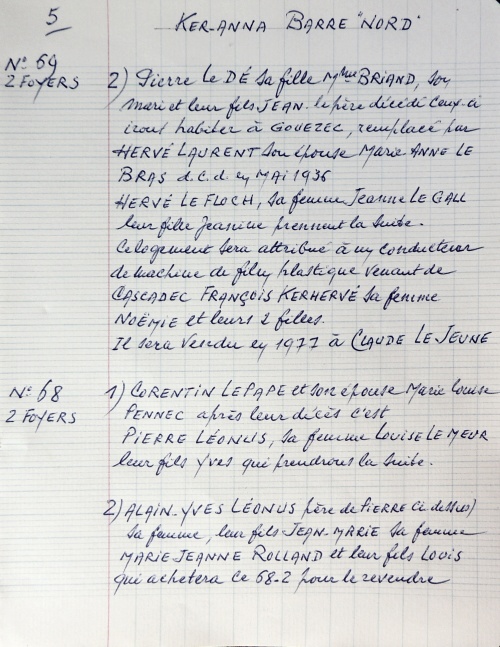 5
KER-ANNA BARRE "NORD"
N° 69
2 FOYERS
2) Pierre LE DÉ sa fille Mme BRIAND, son
mari et leur fils JEAN. le père décédé ceux-ci
iront habiter à GOUEZEC, remplacé par
HERVÉ LAURENT son épouse Marie ANNE LE
BRAS d.c.d. en MAI 1936
HERVÉ LE FLOCH, sa femme Jeanne LE GALL
leur fille Jeanine prennent la suite.
Ce logement sera attribué à un conducteur
de machine de film plastique venant de
CASCADEC FRANÇOIS KERHERVÉ sa femme
NOËMIE et leurs 2 filles.
Il sera vendu en 1977 à CLAUDE LE JEUNE
N° 68
2 FOYERS
1) CORENTIN LE PAPE et son épouse Marie Louise
PENNEC après leur décès c'est
PIERRE LÉONUS, sa femme LOUISE LE MEUR
leur fils YVES qui prendrons la suite.
2) ALAIN-YVES LÉONUS père de PIERRE (ci dessus)
sa femme, leur fils JEAN-MARIE sa femme
MARIE JEANNE ROLLAND et leur fils LOUIS
qui achetera ce 68-2 pour le revendre